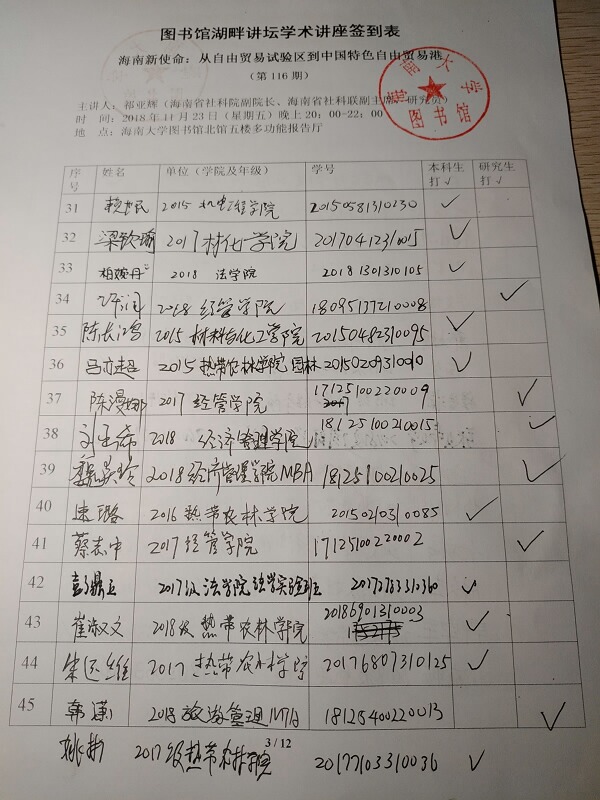 图书馆湖畔讲坛学术讲座签到表
海南新使命：从自由贸易试验区到中国特色自由贸易港
（第 116 期）
海南大学
图书馆
主讲人：祁亚辉（海南省社科院副院长、海南省社科联副主席、研究员）
时 间：2018年11月23日（星期五）晚上20：00-22：00
地 点：海南大学图书馆北馆五楼多功能报告厅
序号 姓名 单位（学院及年级） 学号 本科生打√ 研究生打√
31 2015 机电工程学院 20150581310230 √
32 梁钦瑜 2017材化学院 20170412310015 √
33 2018 法学院 20181301310105 √
34 2018 经管学院 18095137210008 √
35 陈长鸿 2015 材料与化工学院 20150482310095 √
36 马亦超 2015热带农林学院 园林 20150209310010 √
37 陈漫娜 2017 经管学院 17125100220009 √
38 2018 经济管理学院 18125100210015 √
39 2018经济管理学院MBA 18125100210025 √
40 2016热带农林学院 20150203110085 √
41 蔡志中 2017经管学院 17125100220002 √
42 2017级法学院 √
43 崔淑文 2018级热带农林学院 20186901310003 √
44 2017热带农林学院 20176807310125 √
45 韩潇 2018旅游管理MTA 18125400220013 √
3 / 12
2017级热带农林学院 20177103310036 √